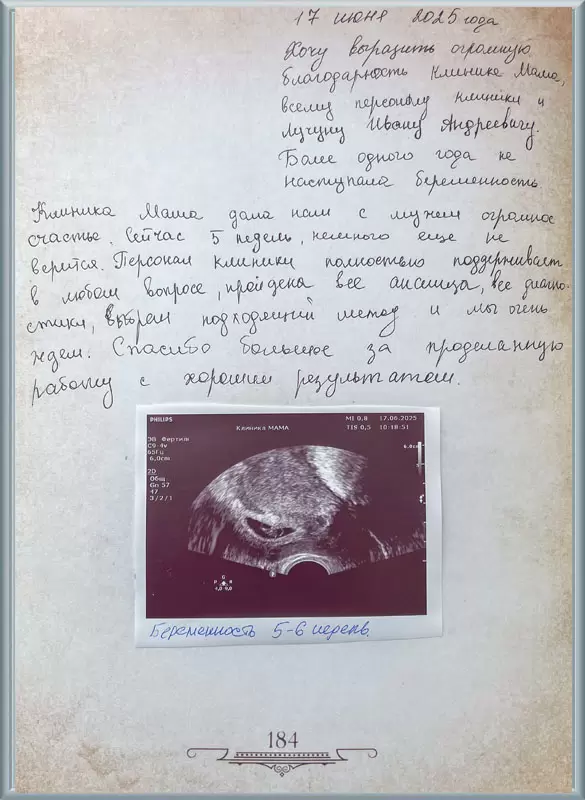 17 июня 2025 года
Хочу выразить огромную
благодарность Клинике Мама,
всему персоналу клиники и
Лучуну Ивану Андреевичу.
Более одного года не
наступала беременность
Клиника Мама дала нам с мужем огромное
счастье. Сейчас 5 недель, немного еще не
верится. Персонал клиники полностью поддерживает
в любом вопросе, пройдена все анализы, все диагно-
стики, выбран подходящий метод и мы очень
ждем. Спасибо большое за проделанную
работу с хорошим результатом.
PHILIPS
MI 0,8 17.06.2025
Клиника МАМА
TIS 0,5 10:18:51
ЭВ Фертильн
C9-4v
65Гц
6,0cm
6.0см
2D
Общ
Gn 57
47
3/2/1
Беременность 5-6 недель.
184